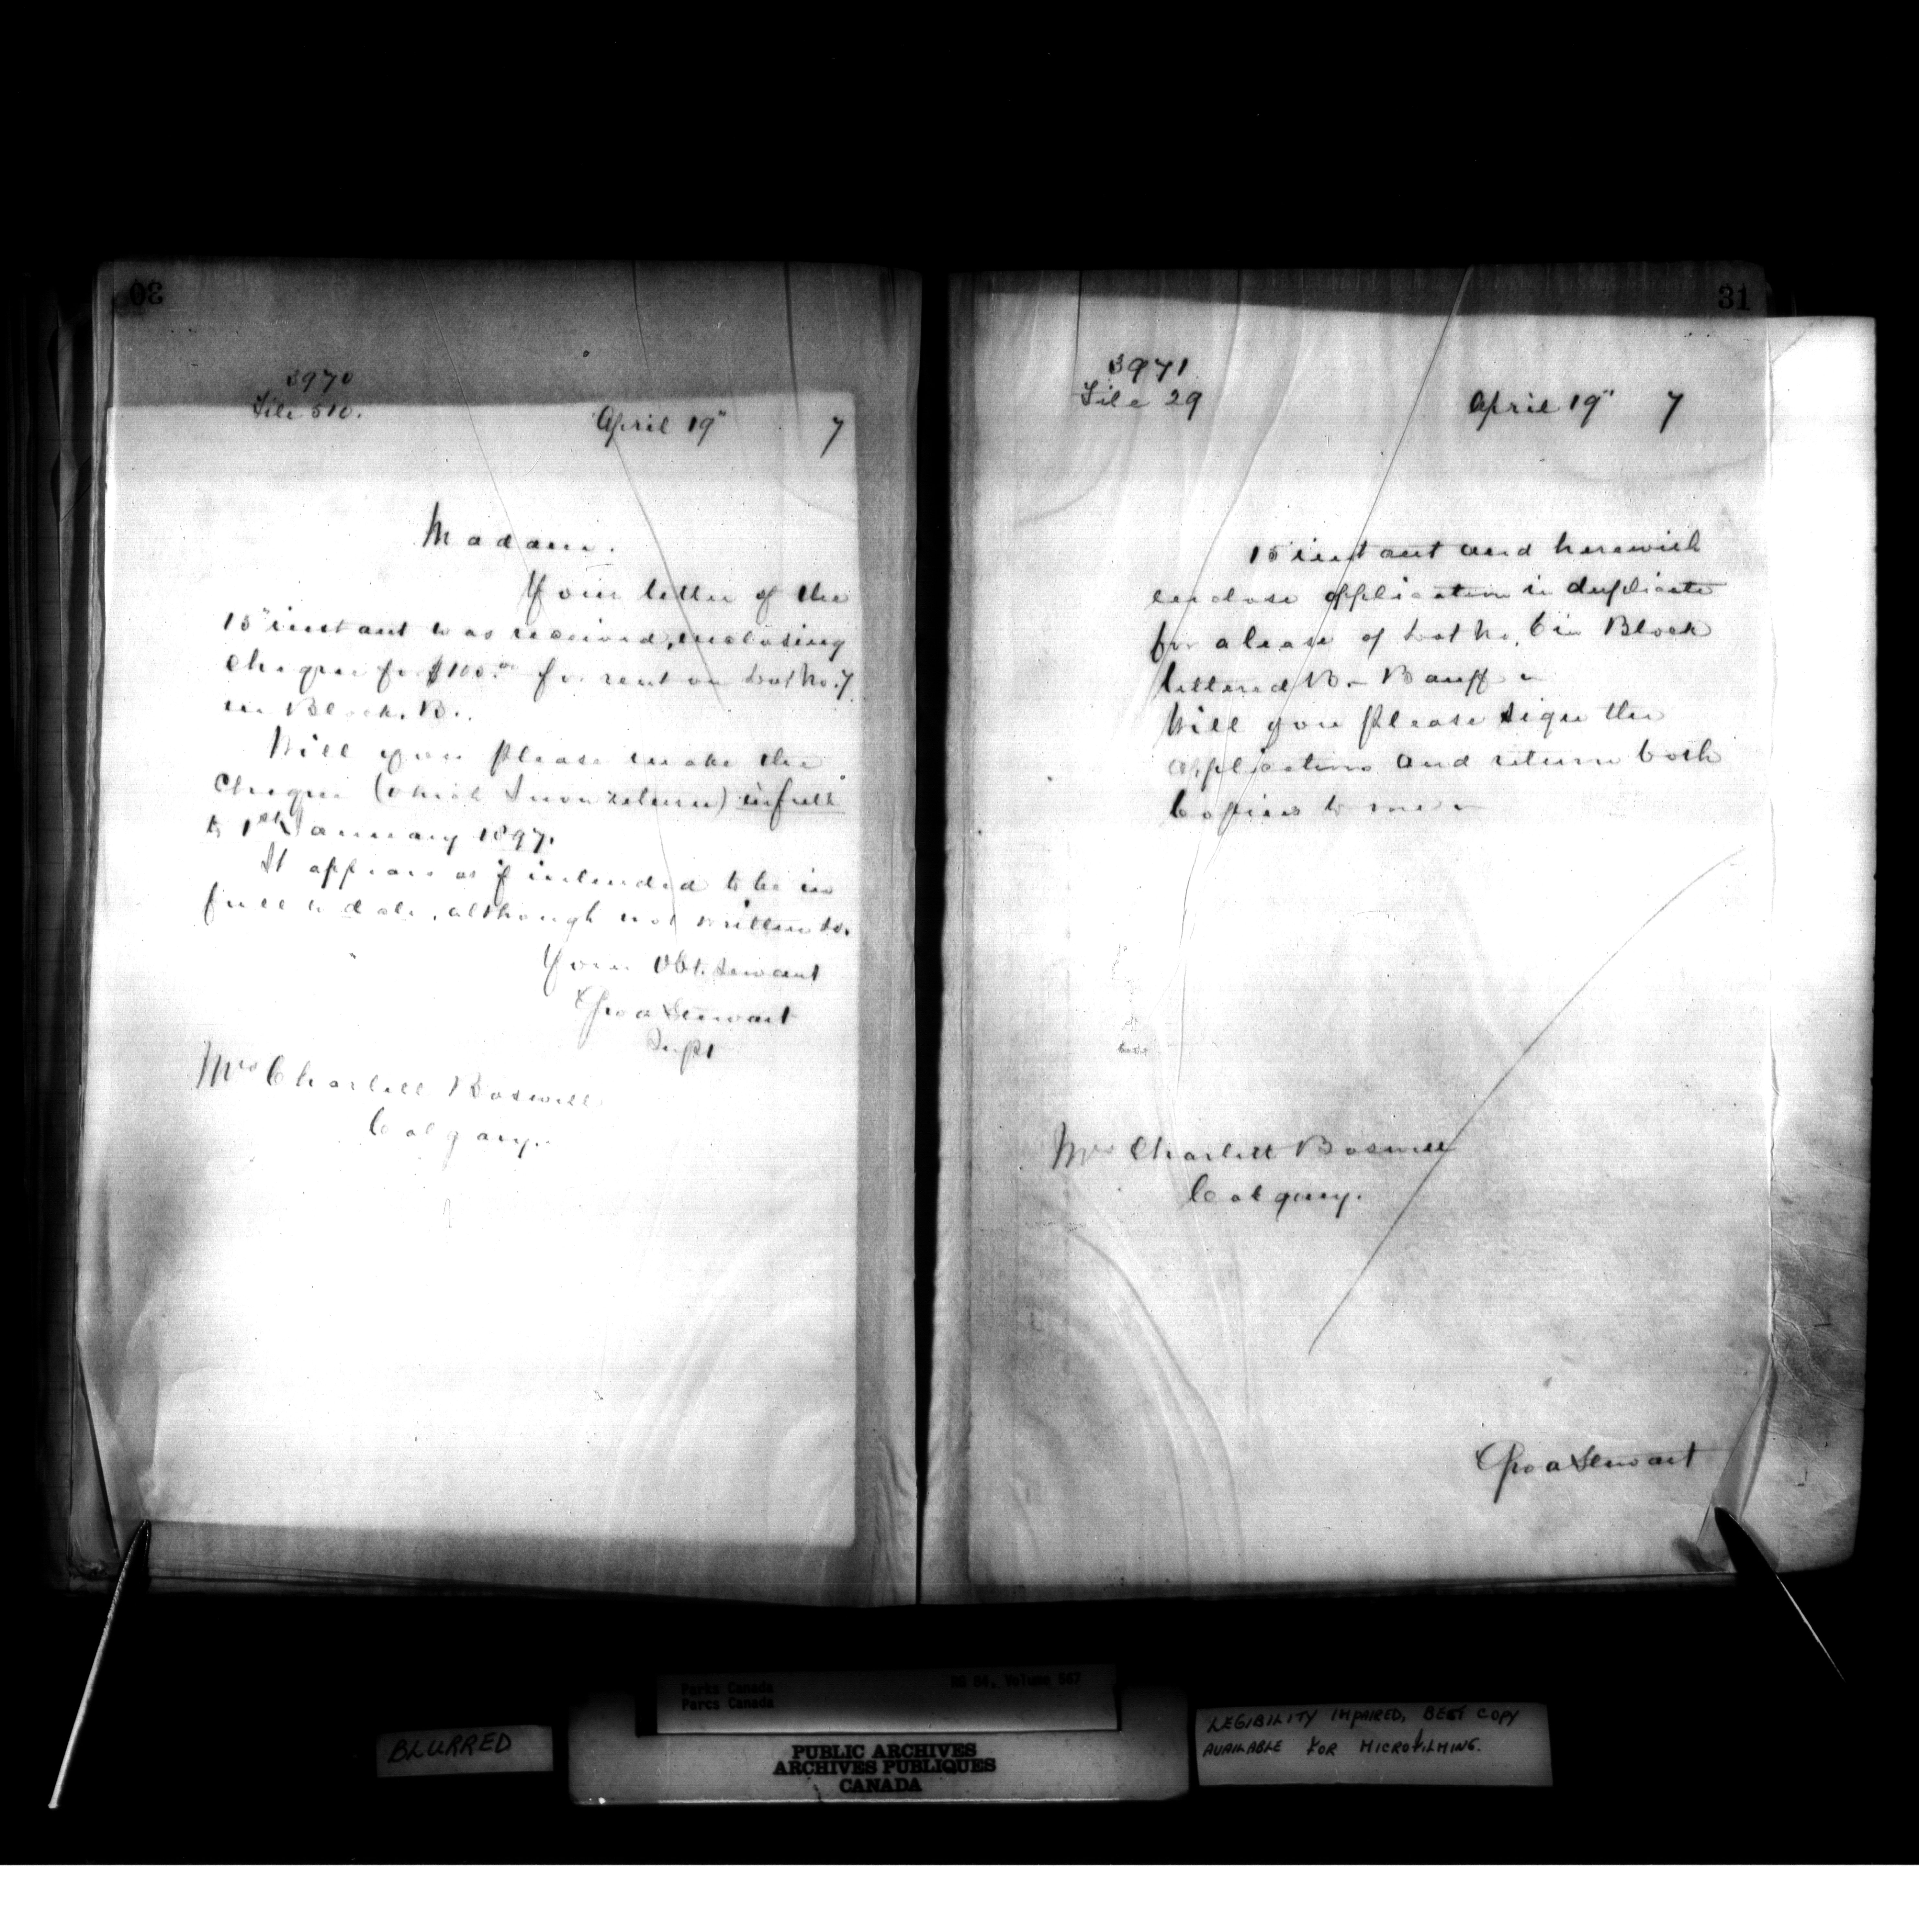 30
3970
File 510.
April 19" 7
Madam.
Your letter of the
15" instant was received, enclosing
Cheque for $100.00 for rent on Lot No. 7
in Block. B.
Will you please make the
Cheque (which I now return) in full
to 1st January 1897.
It appears as if intended to be in
full to date, although not written so.
Your Obt. Servant
Geo A Stewart
Supt
Mrs Charlett Boswell
Calgary.
31
3971
File 29
April 19" 7
15 instant and herewith
enclose application in duplicate
for a lease of Lot No. 6 in Block
lettered B. – Banff
Will you please sign the
application and return both
Copies to me
Mrs Charlett Boswell
Calgary.
Geo A Stewart
Parks Canada
Parcs Canada
RG 84, Volume 567
BLURRED
PUBLIC ARCHIVES
ARCHIVES PUBLIQUES
CANADA
LEGIBILITY IMPAIRED, BEST COPY
AVAILABLE FOR MICROFILMING.